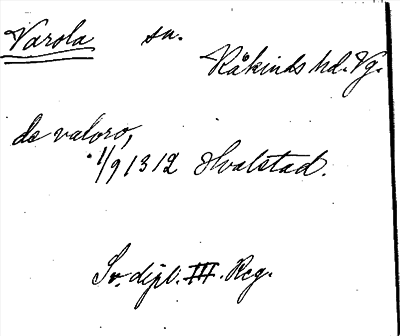 Varola sn.
Kåkinds hd. Vg.
de valoro,
1/9 1312 Hvalstad.
Sv. dipl. III. Reg.